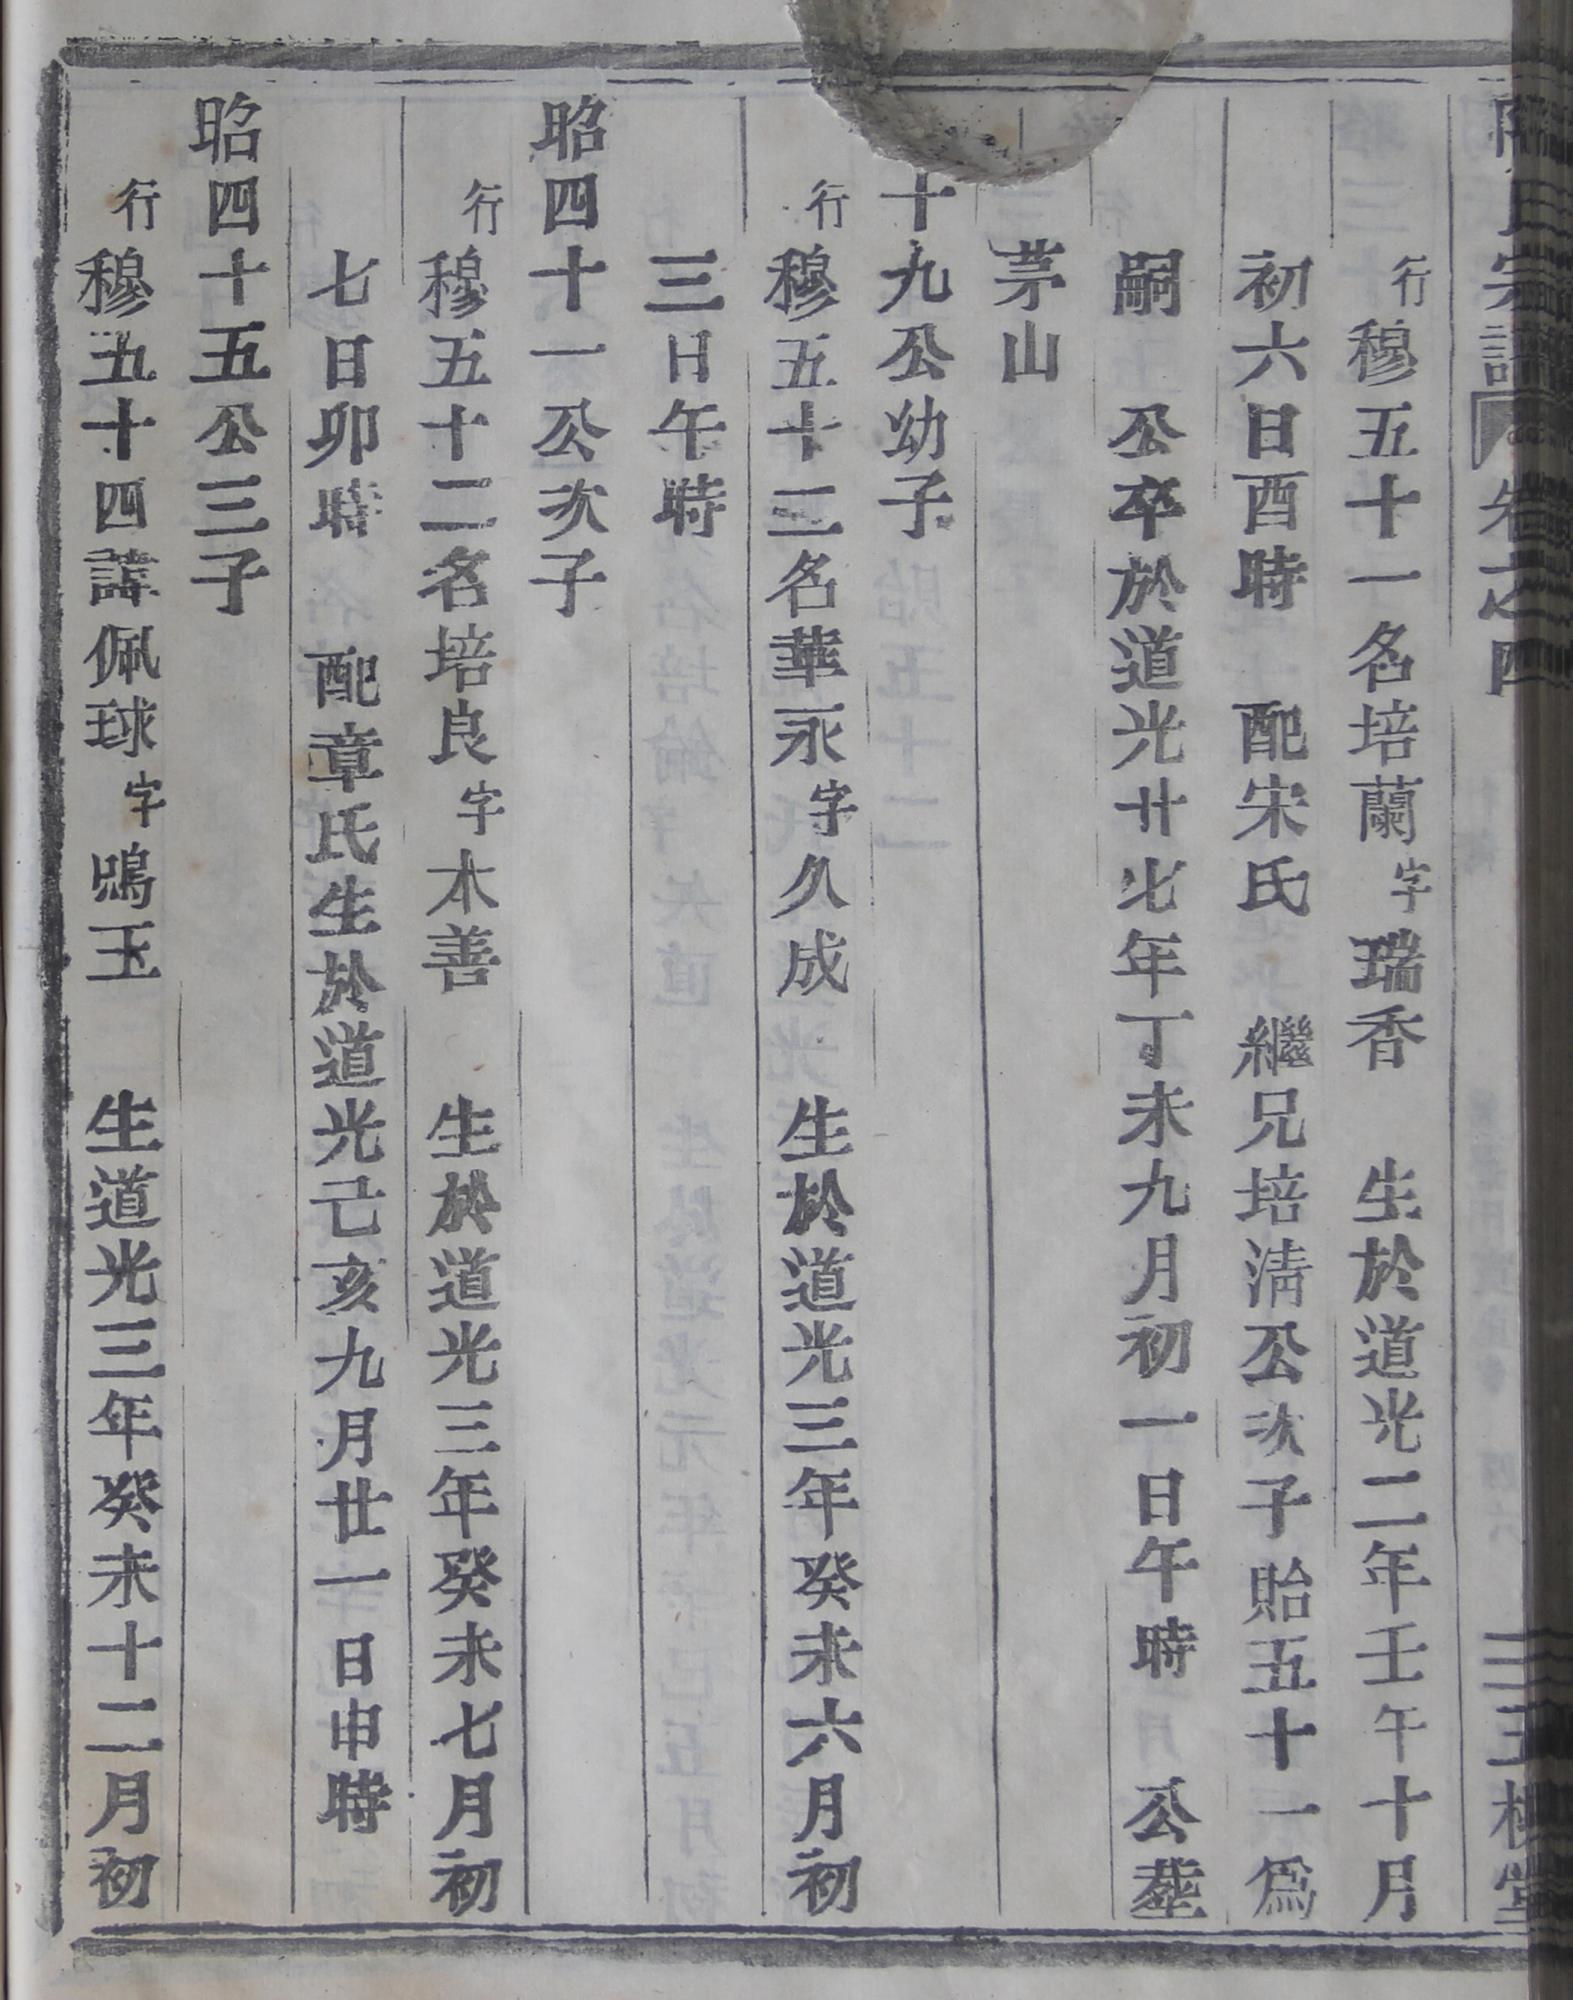 氏宗譜 卷之四 三王槐堂
行穆五十一名培蘭字瑞香 生於道光二年壬午十月
初六日酉時 配宋氏 繼兄培清公次子貽五十一爲
嗣 公卒於道光廿七年丁未九月初一日午時 公塟
茅山
十九公幼子
行穆五十三名華永字久成 生於道光三年癸未六月初
三日午時
昭四十一公次子
行穆五十二名培良字木善 生於道光三年癸未七月初
七日卯時 配章氏生於道光己亥九月廿一日申時
昭四十五公三子
行穆五十四諱佩球字鳴玉 生道光三年癸未十二月初